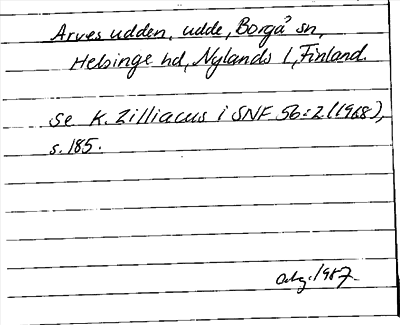 Arves udden, udde, Borgå sn,
Helsinge hd, Nylands l, Finland.
se K. Zilliacus i SNF 56:2 (1968),
s. 185.
1987